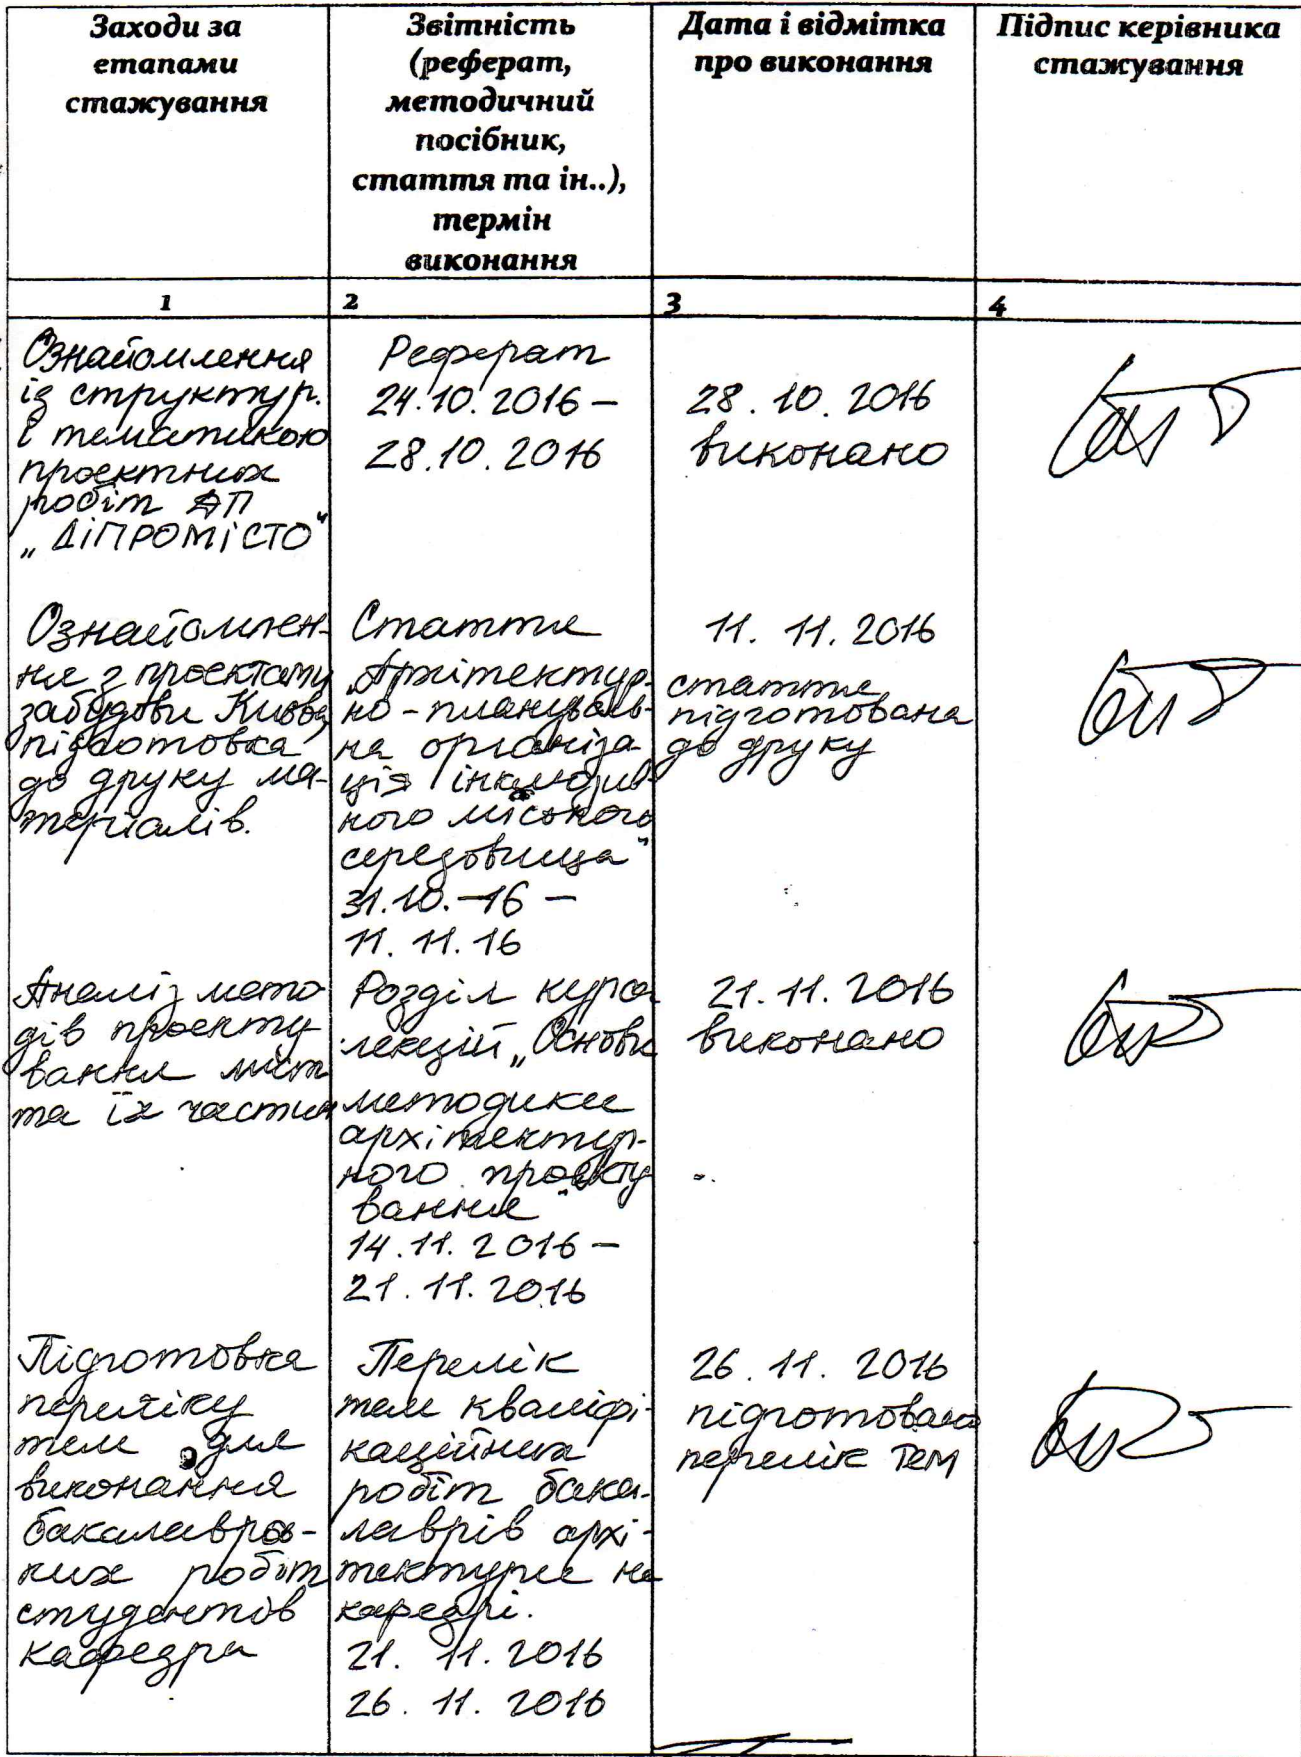 Заходи за
етапами
стажування
Звітність
(реферат,
методичний
посібник,
стаття та ін..),
термін
виконання
Дата і відмітка
про виконання
Підпис керівника
стажування
1
2
3
4
Ознайомлення
із структур.
і тематикою
проектних
робіт ДП
„ДІПРОМІСТО"
Реферат
24.10.2016 –
28.10.2016
28.10.2016
виконано
Ознайомлен-
ня з проектами
забудови Києва,
підготовка
до друку ма-
теріалів.
Стаття
„Архітектур-
но-плануваль-
на організа-
ція інклюзив-
ного міського
середовища"
31.10.–16 –
11.11.16
11.11.2016
стаття
підготована
до друку
Аналіз мето
дів проекту
вання міст
та їх частин
Розділ курса
лекцій „Основи
методики
архітектур-
ного проекту
вання"
14.11.2016 –
21.11.2016
21.11.2016
виконано
Підготовка
переліку
тем для
виконання
бакалаврсь-
ких робіт
студентов
кафедри
Перелік
тем кваліфі-
каційних
робіт бака-
лаврів архі-
тектури на
кафедрі.
21.11.2016
26.11.2016
26.11.2016
підготовано
перелік тем